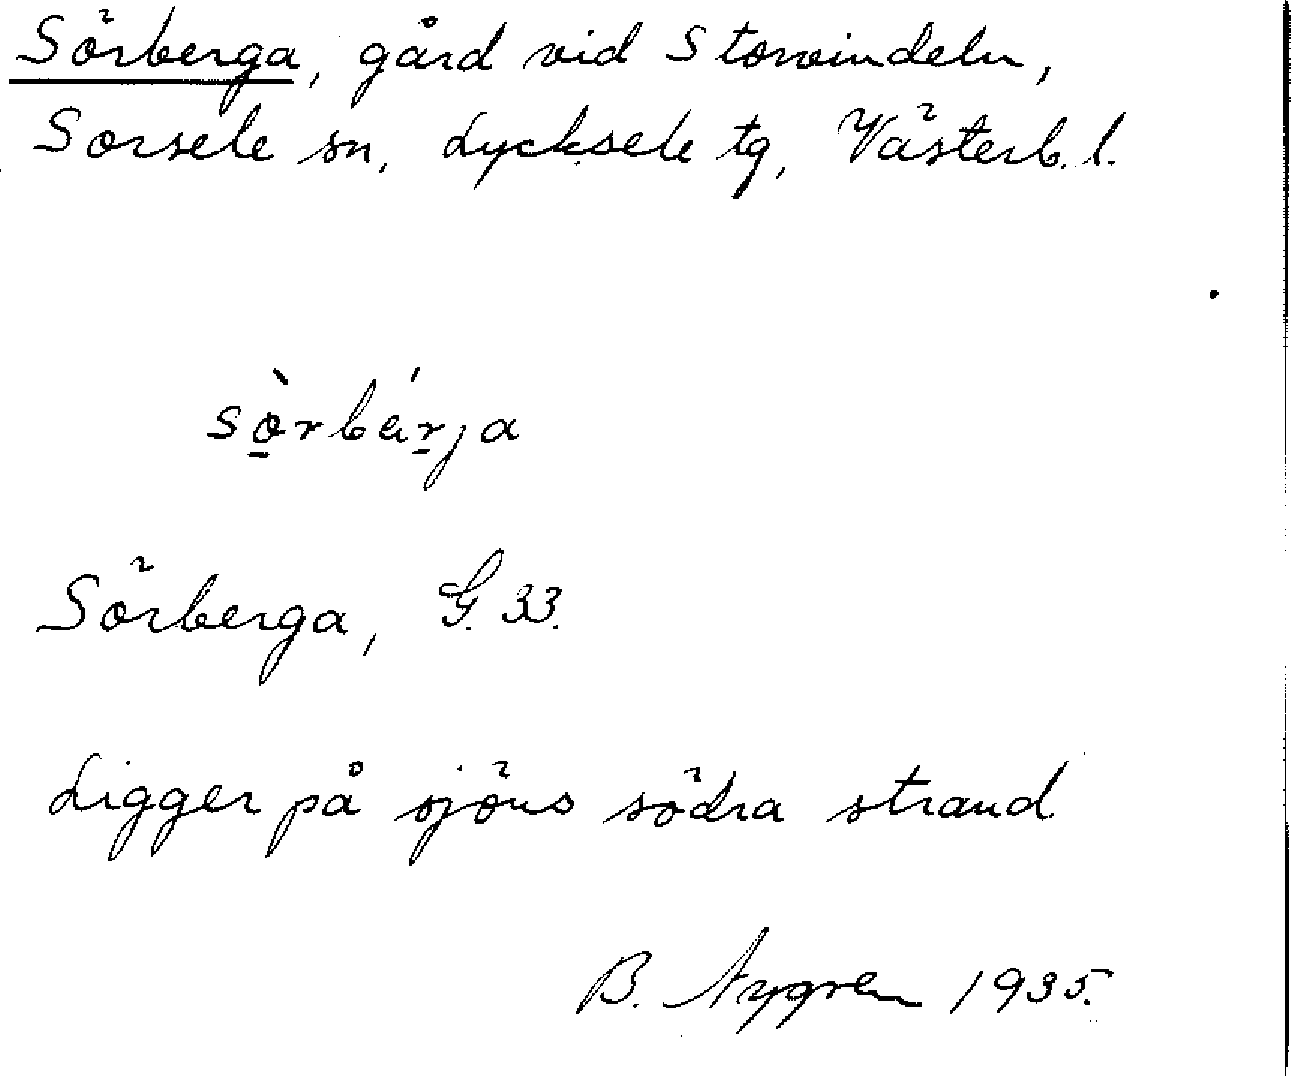 Sörberga, gård vid Storvindeln,
Sorsele sn, Lycksele tg, Västerb. l.
sò̱rbáṟja
Sörberga, G. 33.
Ligger på sjöns södra strand
B. Nygren 1935.